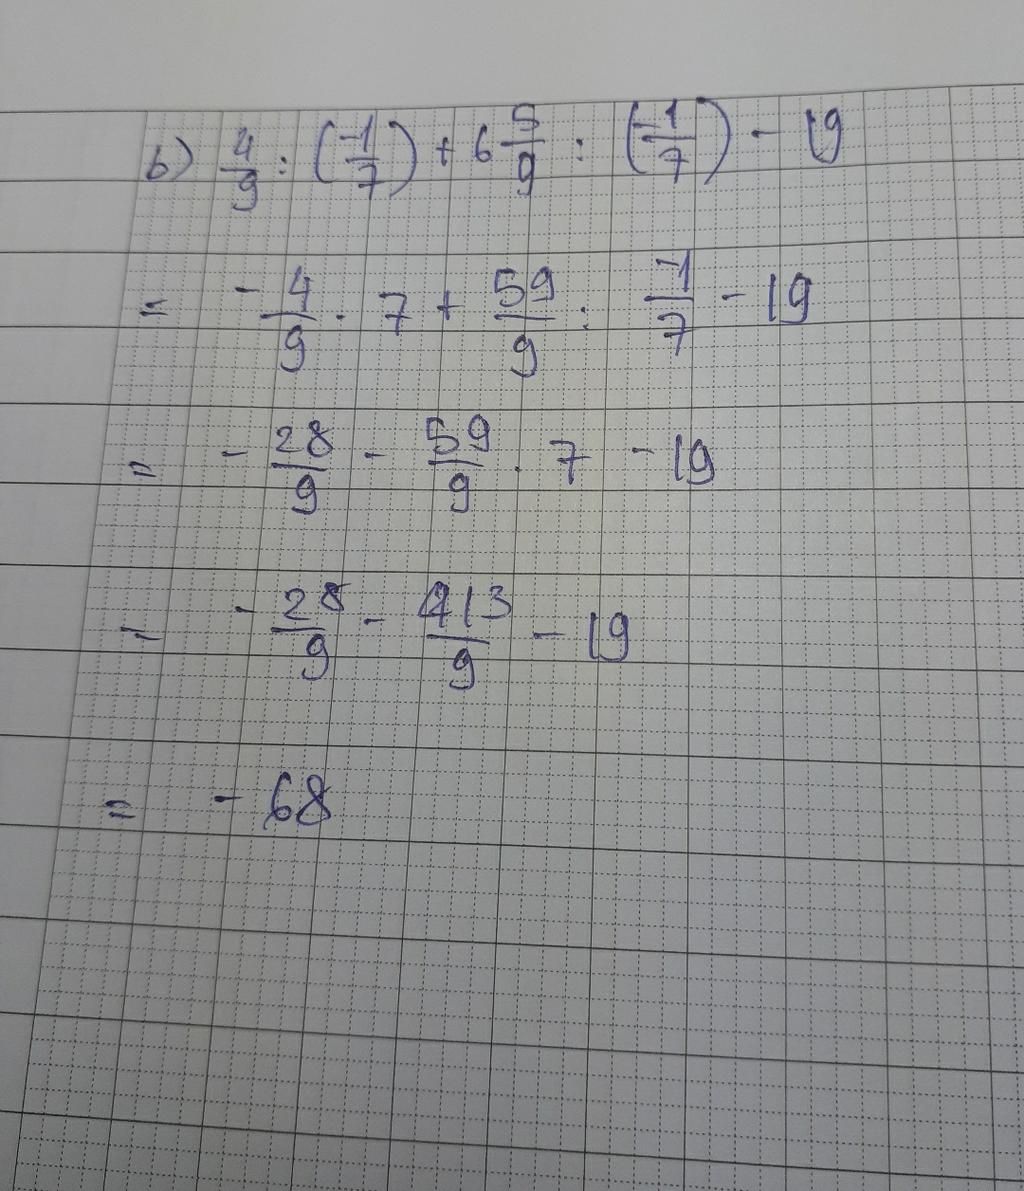 b) 4/9 : (-1/7) + 6 5/9 : (-1/7) - 19
= - 4/9 . 7 + 59/9 : -1/7 - 19
= - 28/9 - 59/9 . 7 - 19
= - 28/9 - 413/9 - 19
= - 68